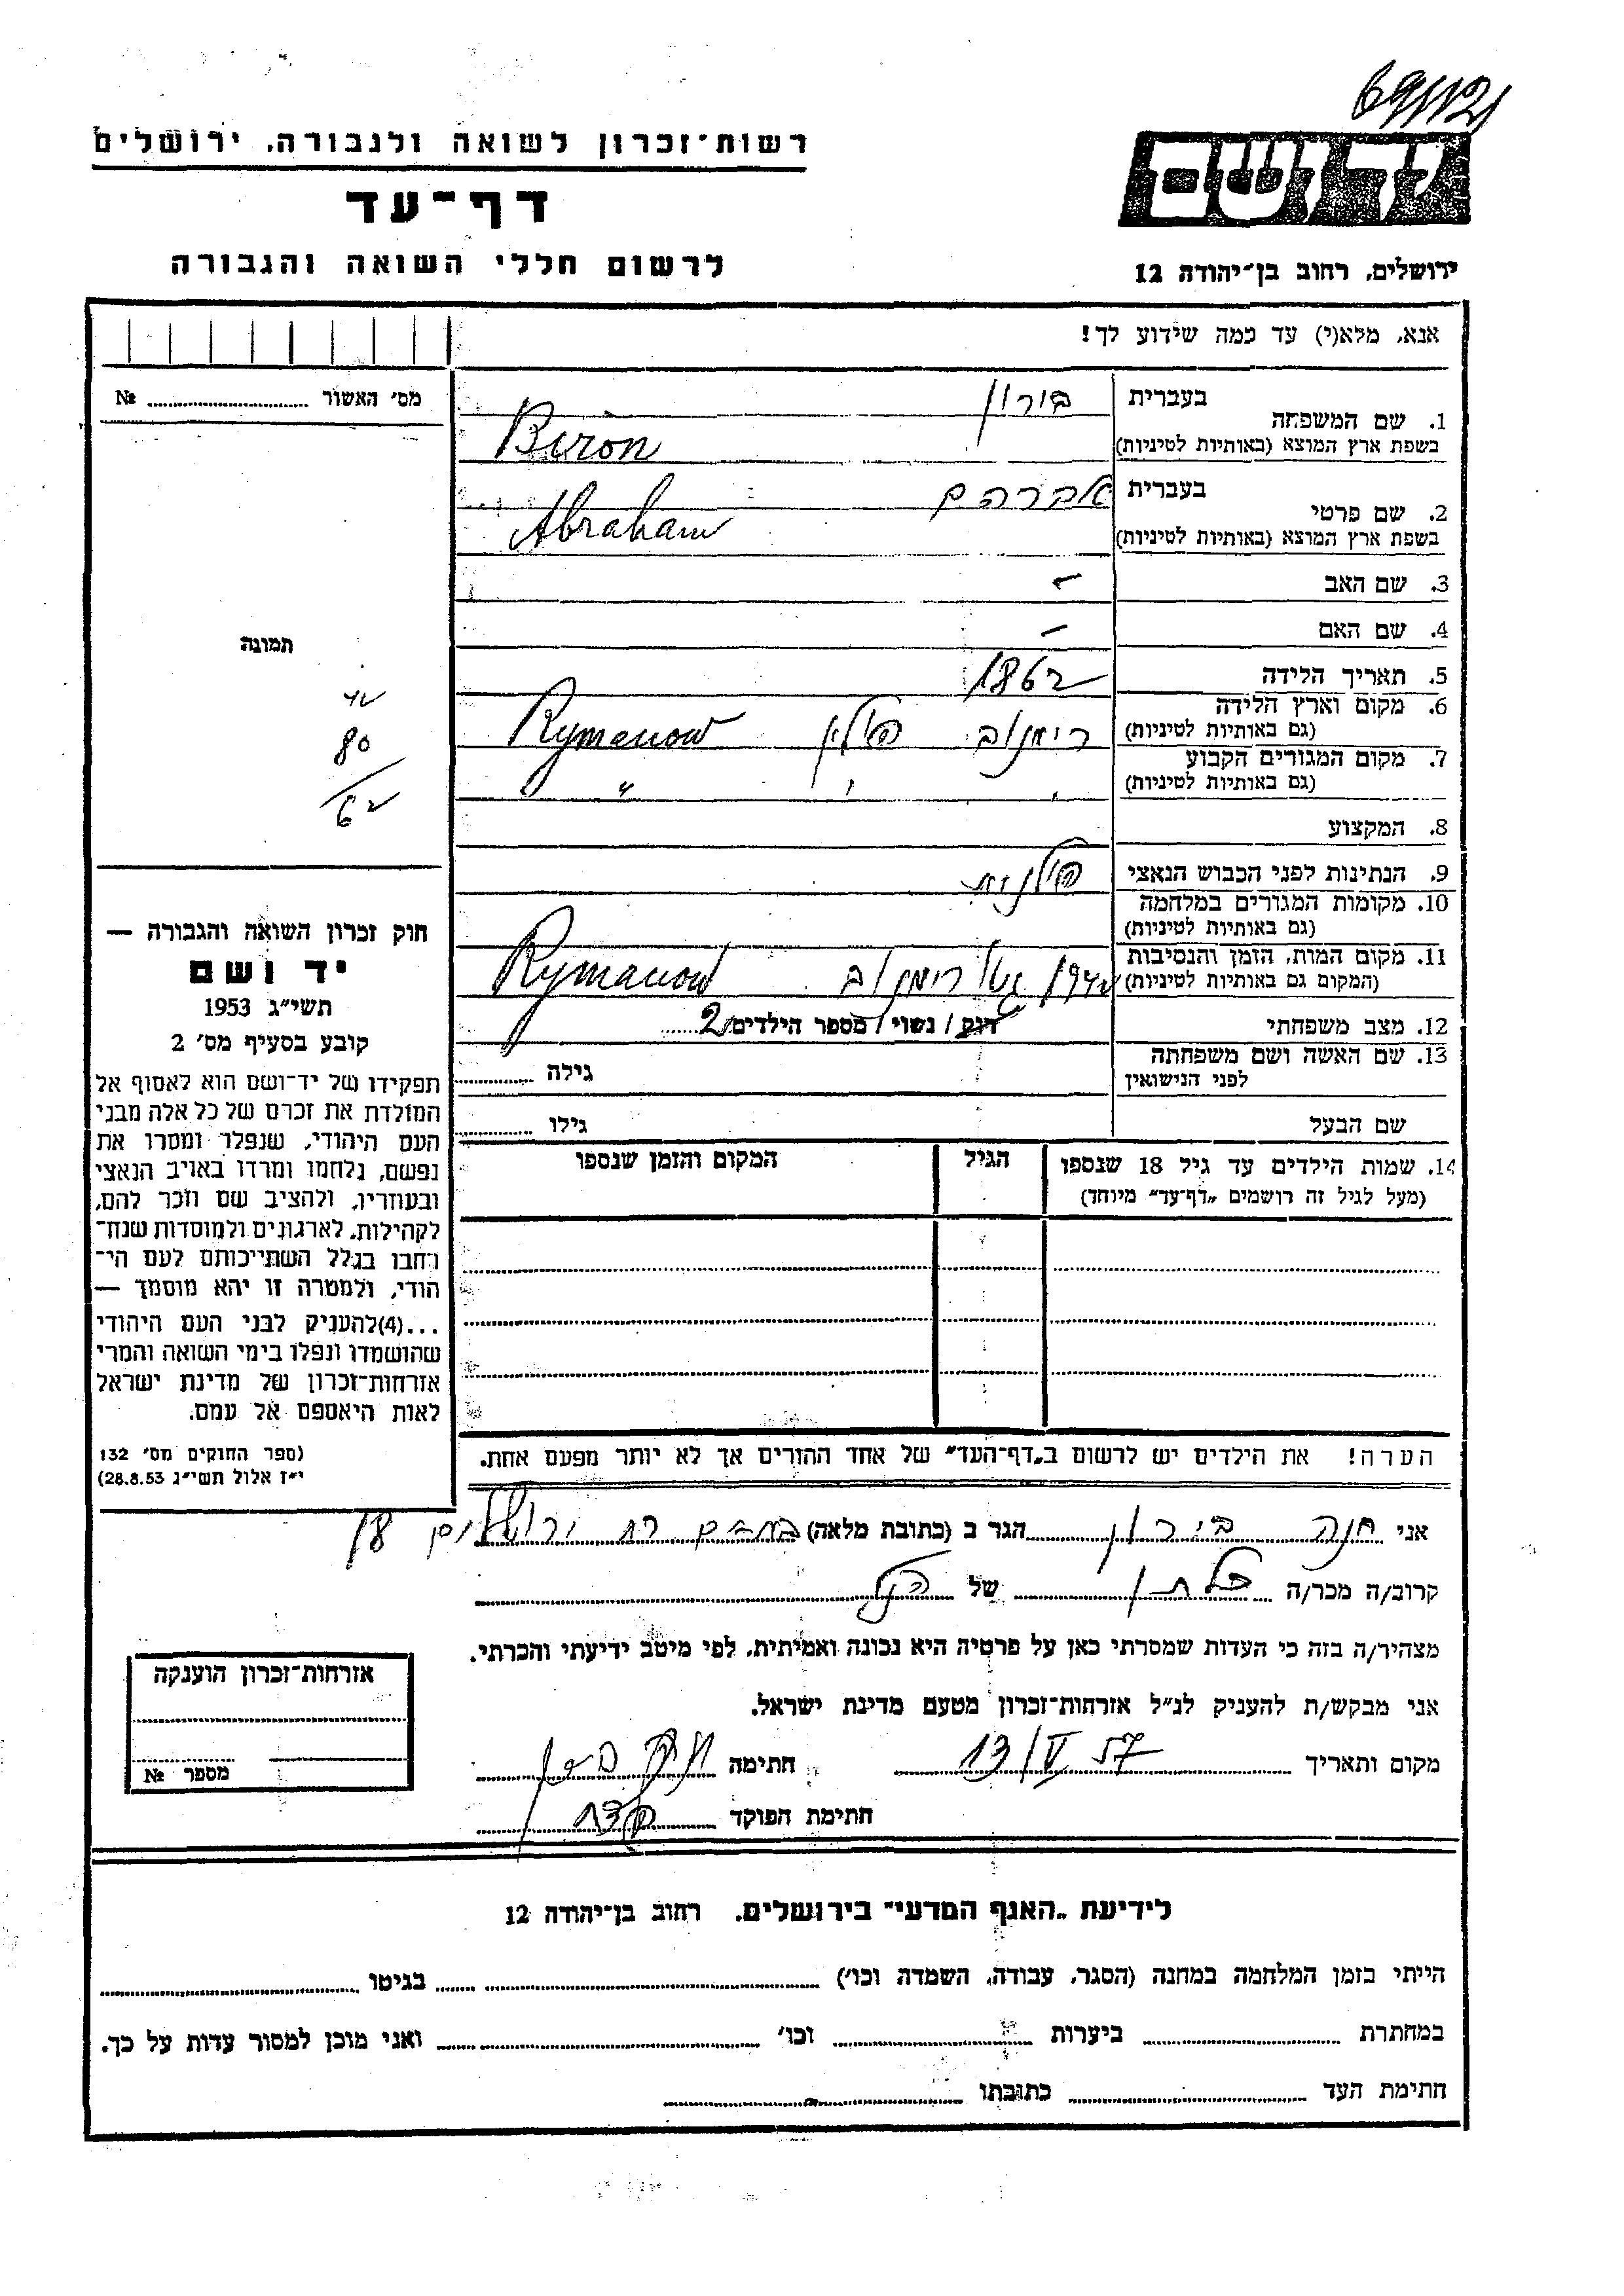 69/1121
רשות־זכרון לשואה ולגבורה, ירושלים
דף־עד
לרשום חללי השואה והגבורה
יד ושם
ירושלים, רחוב בן־יהודה 12
אנא, מלא(י) עד כמה שידוע לך!
מס׳ האשור № 
1. שם המשפחה
בעברית בירון
בשפת ארץ המוצא (באותיות לטיניות) Biron
2. שם פרטי
בעברית אברהם
בשפת ארץ המוצא (באותיות לטיניות) Abraham
3. שם האב -
4. שם האם -
5. תאריך הלידה 1862
6. מקום וארץ הלידה
(גם באותיות לטיניות) רימנוב פולין Rymanow
7. מקום המגורים הקבוע
(גם באותיות לטיניות) " " "
8. המקצוע
9. הנתינות לפני הכבוש הנאצי פולנית
10. מקומות המגורים במלחמה
(גם באותיות לטיניות)
11. מקום המות, הזמן והנסיבות
(המקום גם באותיות לטיניות) 1942 רימנוב Rymanow
12. מצב משפחתי רווק / נשוי / מספר הילדים 2
13. שם האשה ושם משפחתה
לפני הנישואין גילה
שם הבעל גילו
14. שמות הילדים עד גיל 18 שנספו הגיל המקום והזמן שנספו
(מעל לגיל זה רושמים „דף־עד״ מיוחד)
תמונה
42
80
62
חוק זכרון השואה והגבורה —
יד ושם
תשי״ג 1953
קובע בסעיף מס׳ 2
תפקידו של יד־ושם הוא לאסוף אל
המולדת את זכרם של כל אלה מבני
העם היהודי, שנפלו ומסרו את
נפשם, נלחמו ומרדו באויב הנאצי
ובעוזריו, ולהציב שם וזכר להם,
לקהילות, לארגונים ולמוסדות שנח־
רחבו בגלל השתייכותם לעם הי־
הודי, ולמטרה זו יהא מוסמך —
...(4)להעניק לבני העם היהודי
שהושמדו ונפלו בימי השואה והמרי
אזרחות־זכרון של מדינת ישראל
לאות היאספם אל עמם.
(ספר החוקים מס׳ 132
י״ז אלול תשי״ג 28.8.53)
הערה! את הילדים יש לרשום ב„דף־העד״ של אחד ההורים אך לא יותר מפעם אחת.
אני חנה בירון הגר ב (כתובת מלאה) רח ירושלים 18
קרוב/ה מכר/ה כלתו של הנ"ל
מצהיר/ה בזה כי העדות שמסרתי כאן על פרטיה היא נכונה ואמיתית, לפי מיטב ידיעתי והכרתי.
אני מבקש/ת להעניק לנ״ל אזרחות־זכרון מטעם מדינת ישראל.
מקום ותאריך 13/V 57 חתימה חנה בירון
חתימת הפוקד
אזרחות־זכרון הוענקה
מספר №
לידיעת „האגף המדעי״ בירושלים, רחוב בן־יהודה 12
הייתי בזמן המלחמה במחנה (הסגר, עבודה, השמדה וכו׳) בגיטו
במחתרת ביערות וכו׳ ואני מוכן למסור עדות על כך.
חתימת העד כתובתו